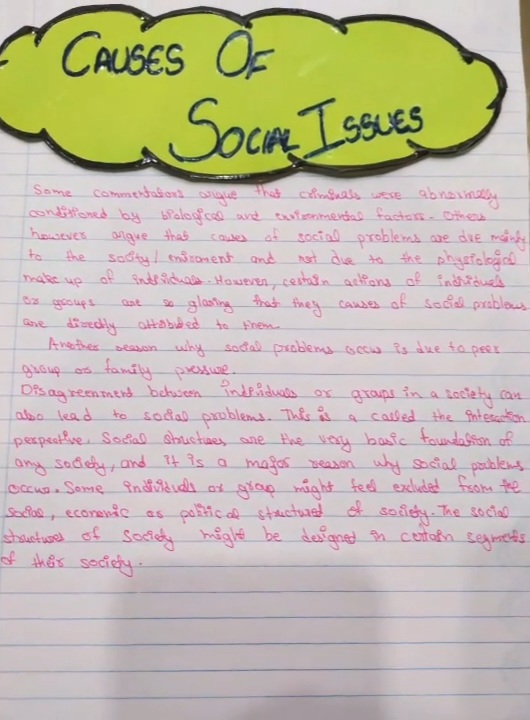 CAUSES OF
SOCIAL ISSUES
Some commentators argue that criminals were abnormally
conditioned by biological and environmental factors. Others
however argue that causes of social problems are due mainly
to the socity/ enironment and not due to the physiological
make up of individuals. However, certain actions of individuals
or groups are so glaring that they causes of social problems
are directly attributed to them.
Another reason why social problems occur is due to peer
group or family pressure.
Disagreenment between individuals or groups in a society can
also lead to social problems. This is a called the interaction
perspective. Social structures are the very basic foundation of
any society, and it is a major reason why social problems
occur. Some individuals or group might feel excluded from the
social, economic or political structured of society. The social
structures of society might be designed in certain segments
of their society.